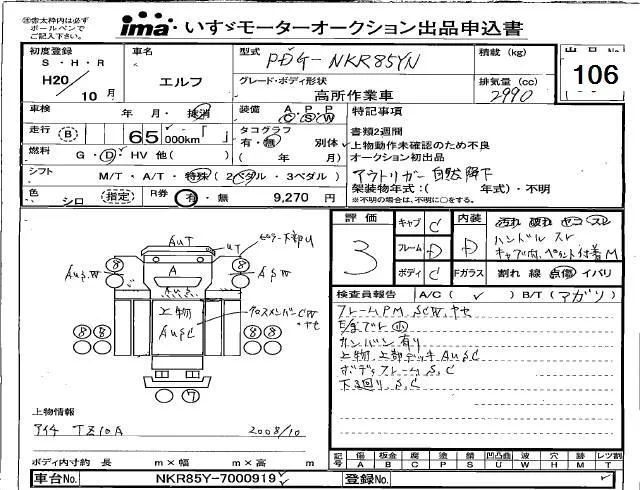 ㊟赤太枠内は必ず
ボールペンで
ご記入下さい。
ima いすゞモーターオークション出品申込書
初度登録
S・H・R
H20/10 月
車名
エルフ
型式
PDG-NKR85YN
積載 (kg)
出品No.
106
グレード・ボディ形状
高所作業車
排気量 (cc)
2990
車検
年 月・抹消
装備 A P P
C S W
特記事項
書類2週間
上物動作未確認のため不良
オークション初出品
アウトリガー自然降下
架装物年式:( 年式)・不明
※不明の場合は、不明に○をする。
走行 B 65,000km「 」
タコグラフ
有・無 別体
( 年 月)
燃料
G・D・HV 他( )
シフト
M/T・A/T・特殊(2ペダル・3ペダル)
色
シロ (指定)
R券
有・無 9,270 円
評価
3
キャブ C
フレーム D
ボディ C
内装
D
Fガラス
汚れ 破れ ヤコゲ スレ
ハンドル スレ
キャブ内、ペイント付着M
割れ 線 点傷 イバリ
検査員報告 A/C ( ✓ ) B/T (アガリ)
フレームPM、SCW、ヤセ
Eノまブレ 小
カンバン有り
上物、上部デッキ AUSC
ボディフレーム S、C
下廻り、S、C
AUT
UT
ピラー下部U
8
8
AUS.W
A
AUS
ASW
8 8
上物
AUSC
クロスメンバーCW
・ヤセ
8 8
7
上物情報
アイチ TZ10A 2008/10
ボディ内寸約 長 m×幅 m×高 m
記号 傷 板金 腐 塗 錆 凹凸凹 波 穴 時 レツ割
A B C P S U W H M T
車台No. NKR85Y-7000919
登録No.